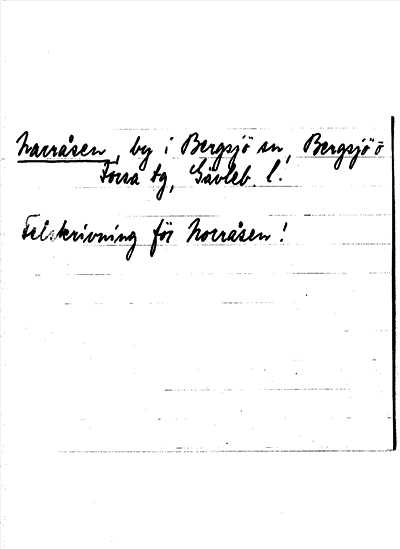 Narråsen, by i Bergsjö sn, Bergsjö o
Forsa tg, Gävleb. l.
Felskrivning för Norråsen!